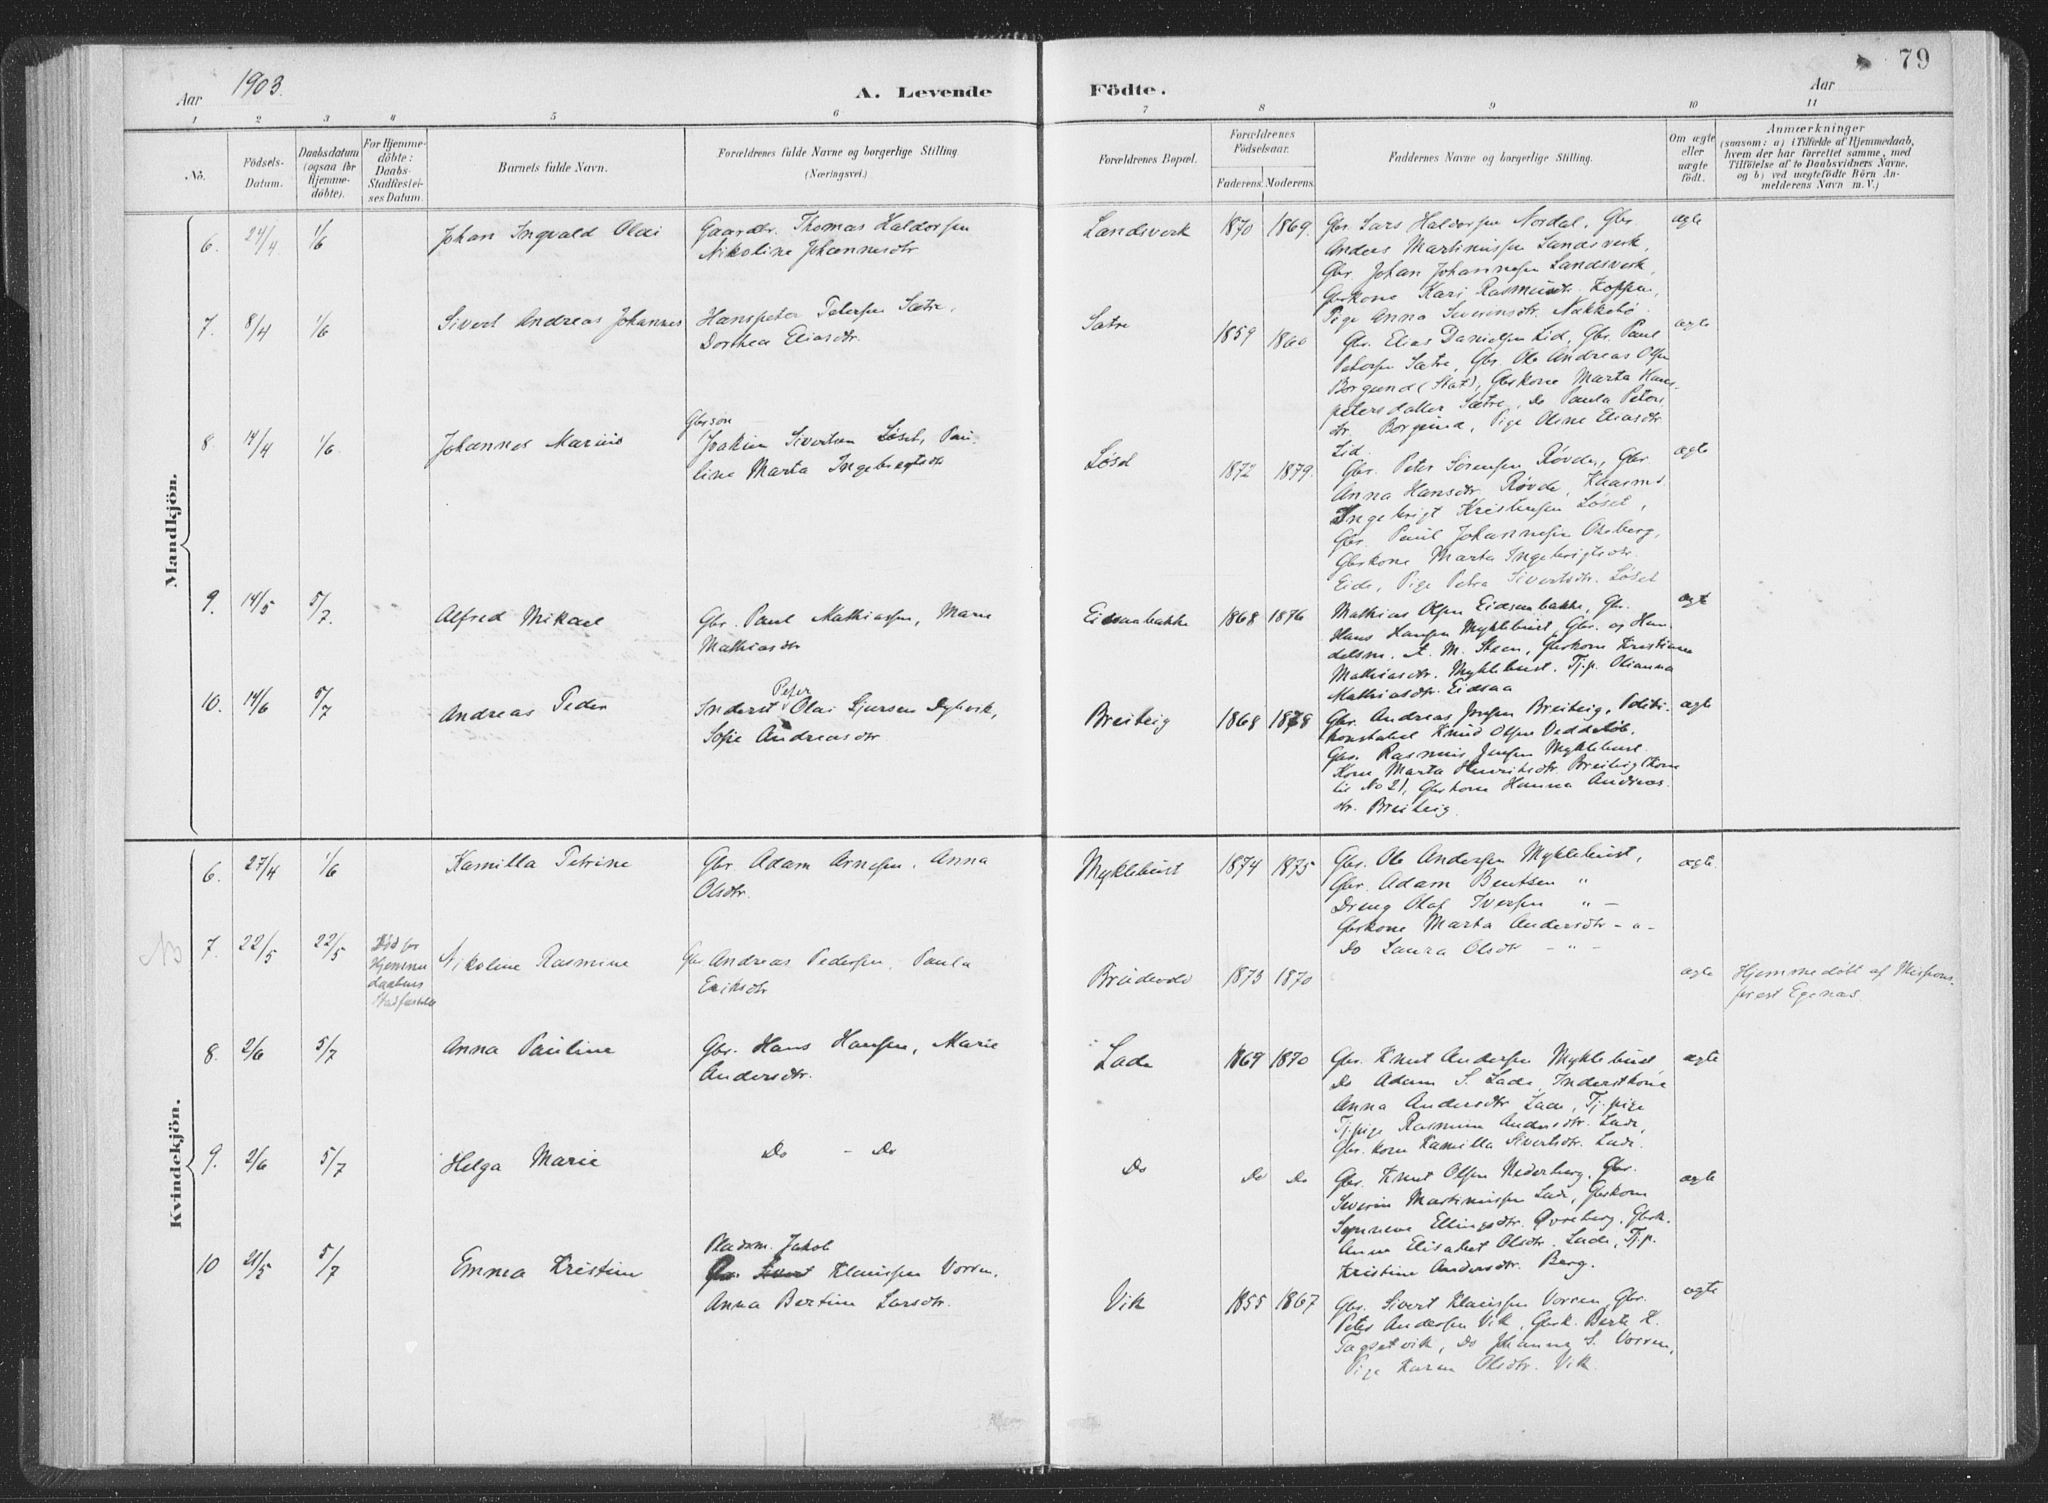 Aar 1903.
A. Levende Födte.
Aar
79
1 2 3 4 5 6 7 8 9 10 11
No.
Födsels-Datum.
Daabsdatum (ogsaa for Hjemmedöbte).
For Hjemmedöbte: Daabs-Stadfæstelses Datum.
Barnets fulde Navn.
Forældrenes fulde Navne og borgerlige Stilling (Næringsvei.)
Forældrenes Bopæl.
Forældrenes Födselsaar.
Faderens. Moderens.
Faddernes Navne og borgerlige Stilling.
Om ægte eller uægte födt.
Anmærkninger
(saasom: a) i Tilfælde af Hjemmedaab, hvem der har forrettet samme, med Tilföielse af to Daabsvidners Navne, og b) ved uægtefödte Börn Anmelderens Navn m. V.)
Mandkjön.
6. 24/4. 1/6 Johan Ingvald Olai
Gaardbr. Thomas Haldorsen
Nikoline Johannesdtr
Landsverk 1870 1869.
Gbr. Lars Haldorsen Nordal, Gbr.
Anders Martinussen Landsverk,
Gbr Johan Johannesen Landsverk,
Gbrkone Kari Rasmusdtr. Koppen,
Pige Anna Severinsdtr. Nakkebø
ægte
7. 8/4 1/6 Sivert Andreas Johannes
Hanspeter Petersen Sætre,
Dorthea Eliasdtr.
Sætre 1859 1860
Gbr. Elias Danielsen Lid, Gbr. Paul
Petersen Sætre, Gbr. Ole Andreas Olsen
Borgund (Stat), Gbrkone Marta Hans-
petersdatter Sætre, Do Paula Peters
dtr. Borgund, Pige Oline Eliasdtr
Lid.
ægte
8 14/4 1/6. Johannes Marius
Gbrsøn
Joakim Sivertsen Løset, Pau-
line Marta Ingebrigtsdtr
Løset 1872 1879.
Gbr. Peter Sørensen Røvde, Gbr
Anna Hansdtr. Røvde, Kaarmd
Ingebrigt Kristensen Løset,
Gbr. Paul Johannesen Aaberg,
Gbrkone Marta Ingebrigtsdtr.
Eide, Pige Petra Sivertsdtr. Løset
ægte
9. 14/5 5/7. Alfred Mikael
Gbr. Paul Mathiassen, Marie
Mathiasdtr
Eidsaabakke 1868 1876
Mathias Olsen Eidsaabakke, Gbr.
Hans Hansen Myklebust, Gbr. og Han-
delsm. A. M. Steen, Gbrkone Kristianne
Mathiasdtr. Myklebust. Tj.p. Olianna
Mathiasdtr. Eidsaa
ægte
10. 14/6 5/7 Andreas Peder
Peter
Inderst Olai Sjursen Dybvik,
Sofie Andreasdtr
Breiteig 1868 1878
Gbr. Andreas Jensen Breiteig, Politi-
konstabel Knud Olsen Veddeløb,
Gbr. Rasmus Jensen Myklebust
Kone Marta Henriksdtr. Breiteig (Kone
til No 2), Gbrkone Hanna Andreas-
dtr. Breiteig.
ægte
Kvindekjön.
6. 27/4 1/6 Kamilla Petrine
Gbr Adam Arnesen, Anna
Olsdtr.
Myklebust 1874 1875
Gbr. Ole Andersen Myklebust,
Gbr. Adam Bentsen "
Dreng Olaf Iversen " -
Gbrkone Marta Andersdtr - " -
Do Laura Olsdtr - " -
ægte.
NB 7. 22/5 22/5
Død før
Hjemme
daabens
Stadfæstelse
Nikoline Rasmine
Gbr Andreas Pedersen, Paula
Eriksdtr
1873 1870
ægte
Hjemmedøbt af Missions-
prest Egenæs.
8. 2/6 5/7 Anna Pauline
Gbr. Hans Hansen, Marie
Andersdtr.
Lade 1869 1870
Gbr. Knut Andersen Myklebust
Do Adam S. Lade, Inderstkone
Anna Andersdtr Lade, Tj.pige
Tj.pige Rasmine Andersdtr. Lade,
Gbr.kone Kamilla Sivertsdtr. Lade.
ægte
9. 2/6 5/7 Helga Marie
Do - Do
Do Do Do
Gbr. Knut Olsen Nederberg, Gbr.
Severin Martinussen Lade, Gbrkone
Synneve Ellingsdtr. Øvreberg, Gbrk.
Anne Elisabet Olsdtr. Lade, Tj.p.
Kristine Andersdtr. Berg.
ægte
10 21/5 5/7 Emma Kristine
Pladsm. Jakob
Klausen Vorren,
Anna Bertine Larsdtr.
Vik 1855 1867
Gbr. Sivert Klausen Vorren, Gbr.
Peter Andersen Vik, Gbrk. Berte K.
Fagsetvik, Do Johanna S. Vorren,
Pige Karen Olsdtr. Vik.
ægte